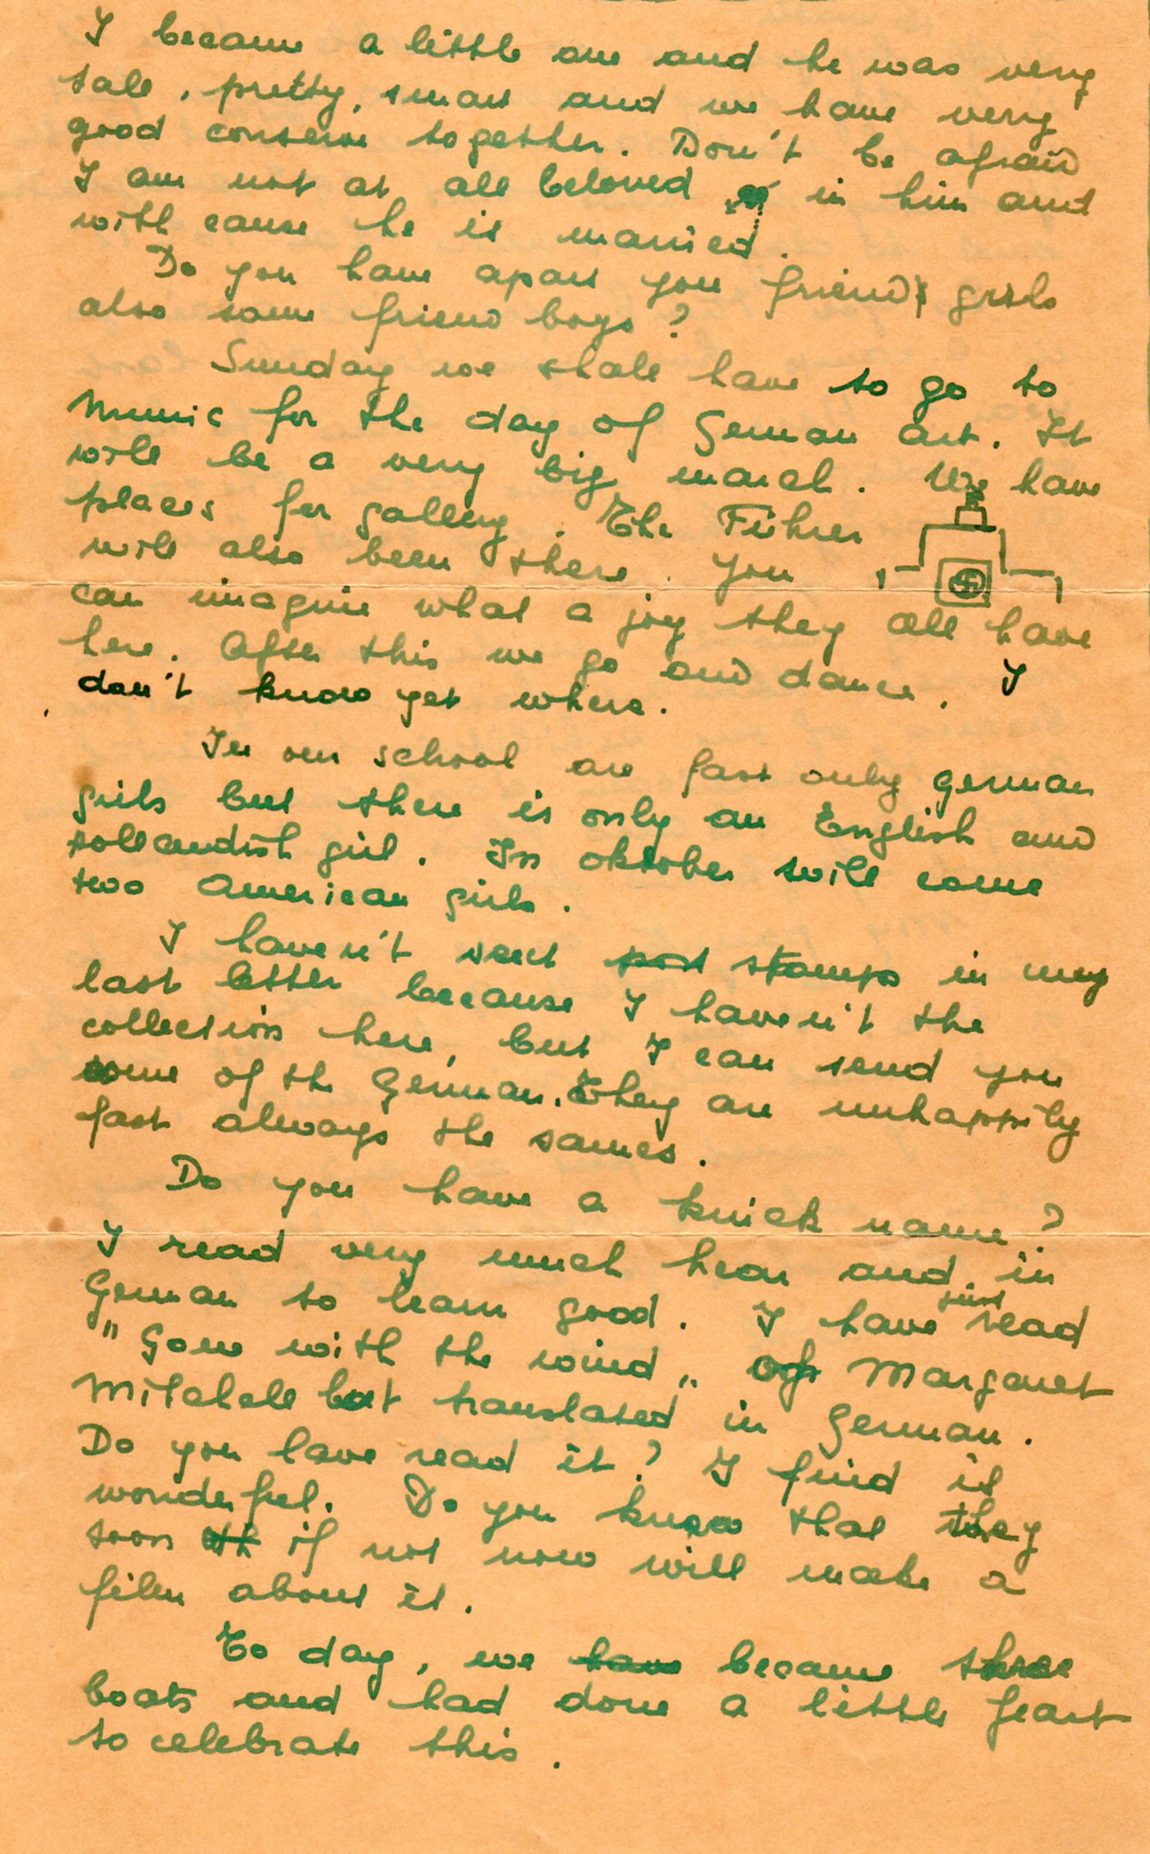 I became a little one and he was very
tale, pretty, smart and we have very
good conserve together. Don't be afraid
I am not at all beloved in him and
with cause he is married.
Do you have apart you friend girls
also some friend boys?
Sunday we shale have to go to
Munic for the day of German Art. It
wile be a very big march. We have
places for gallery. The Führer
wile also been there. You
can imagine what a joy they all have
here. After this we go and dance, I
don't know yet where.
In our school are fast only german
girls but there is only an English and
hollandish girl. In oktober wile come
two American girls.
I haven't sent post stamps in my
last letter because I haven't the
collection here, but I can send you
some of the German. They are unhappily
fast always the sames.
Do you have a knick name?
I read very much hear and in
German to learn good. I have just read
"Gone with the wind„ of Margaret
Mitchele but translated in German.
Do you have read it? I find it
wonderful. Do you know that they
soon if not now will make a
film about it.
To day, we have became three
boats and had done a little feast
to celebrate this.